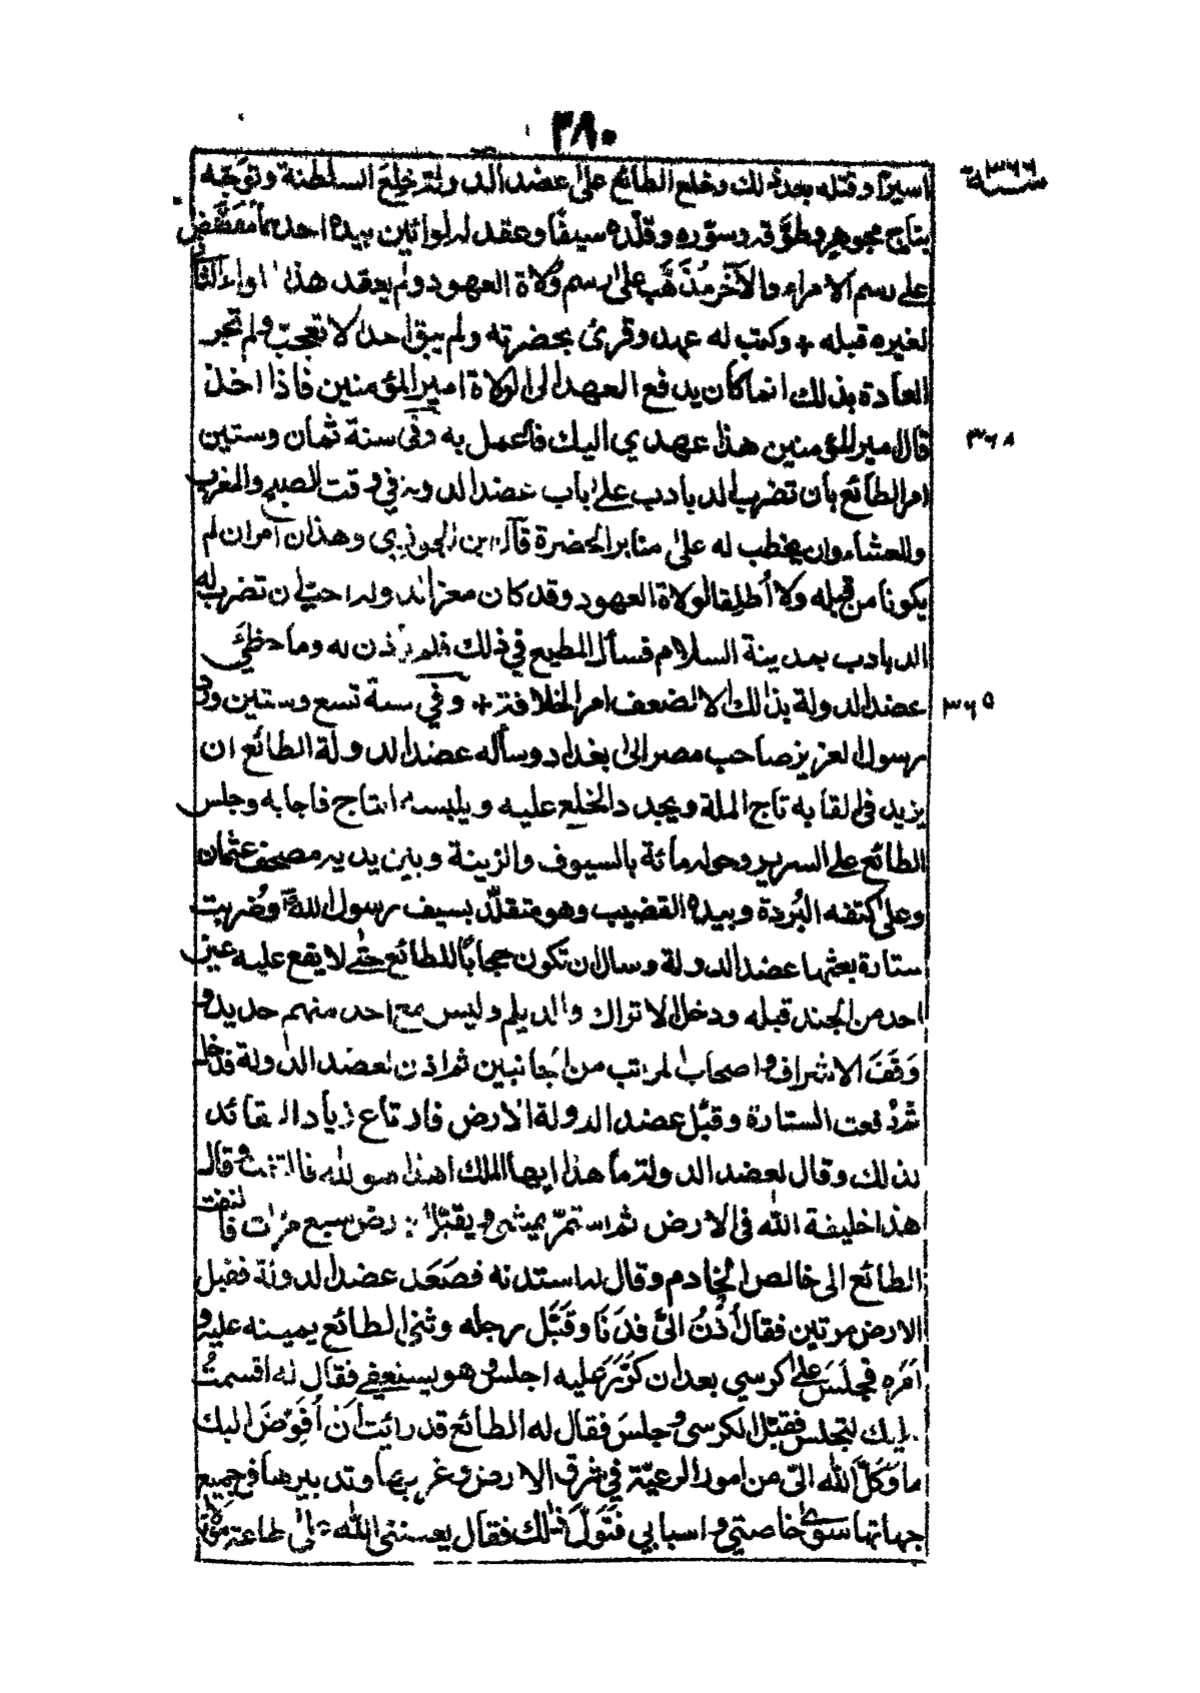 ٣٨٠
اسيرًا وقتله بعد ذلك وخلع الطائع على عضد الدولة خلع السلطنة وتوّجه
سنة ٣٦٦
بتاج مجوهر وطوّقه وسوّره وقلّده سيفًا وعقد له لوائين بيده احدهما مفضّض
على رسم الامراء والآخر مُذَهّب على رسم وُلاة العهود ولم يعقد هذا اللواء الثاني
لغيره قبله + وكتب له عهد وقرئ بحضرته ولم يبق احد الا تعجّب ولم تجر
العادة بذلك انما كان يدفع العهد الى الولاة امير المؤمنين فاذا اخذ
قال امير المؤمنين هذا عهدي اليك فاعمل به وفي سنة ثمان وستين
٣٦٨
امر الطائع بأن تضرب الدبادب على باب عضد الدولة في وقت الصبح والمغرب
والعشاء وان يخطب له على منابر الحضرة قال ابن الجوزي وهذان امران لم
يكونا من قبله ولا أُطلِقا لولاة العهود وقد كان معز الدولة احبّ ان تضرب له
الدبادب بمدينة السلام فسأل المطيع في ذلك فلم يأذن له وما حظيَ
عضد الدولة بذلك الا لضعف امر الخلافة + وفي سنة تسع وستين ورد
٣٦٩
رسول العزيز صاحب مصر الى بغداد وسأله عضد الدولة الطائع ان
يزيد في القابه تاج الملة ويجدد الخلع عليه ويلبسه التاج فاجابه وجلس
الطائع على السرير وحوله مائة بالسيوف والزينة وبين يديه مصحف عثمان
وعلى كتفه البُردة وبيده القضيب وهو متقلّد بسيف رسول الله وضُربت
ستارة بعثها عضد الدولة وسال ان تكون حجابًا للطائع حتى لا يقع عليه عين
احد من الجند قبله ودخل الاتراك والديلم وليس مع احد منهم حديد و
وَقَفَ الاشراف واصحاب المراتب من الجانبين ثم اذن لعضد الدولة فدخل
ثم رُفعت الستارة وقبّل عضد الدولة الارض فارتاع زياد القائد
بذلك وقال لعضد الدولة ما هذا ايها الملك اهذا هو الله فالتفت وقال
هذا خليفة الله في الارض ثم استمرّ يمشي ويقبّل الارض سبع مرّات فالتفت
الطائع الى خالص الخادم وقال له استدنه فصَعَد عضد الدولة فقبل
الارض مرتين فقال أُدْنُ اليّ فدَنَا وقَبَّل رجله وثنى الطائع يمينه عليه و
امَره فجلَسَ على كرسي بعد ان كرّر عليه اجلس وهو يستعفى فقال له اقسمتُ
عليك لتجلس فقبّل الكرسي وجلسَ فقال له الطائع قد رائيت أنْ أُفَوِّضَ اليك
ما وَكَّلَ الله اليّ من امور الرعيّة في شرق الارض وغربها وتدبيرها في جميع
جهاتها سوى خاصتي واسبابي فتَوَلَّ ذلك فقال يعينني الله على طاعة مولانا